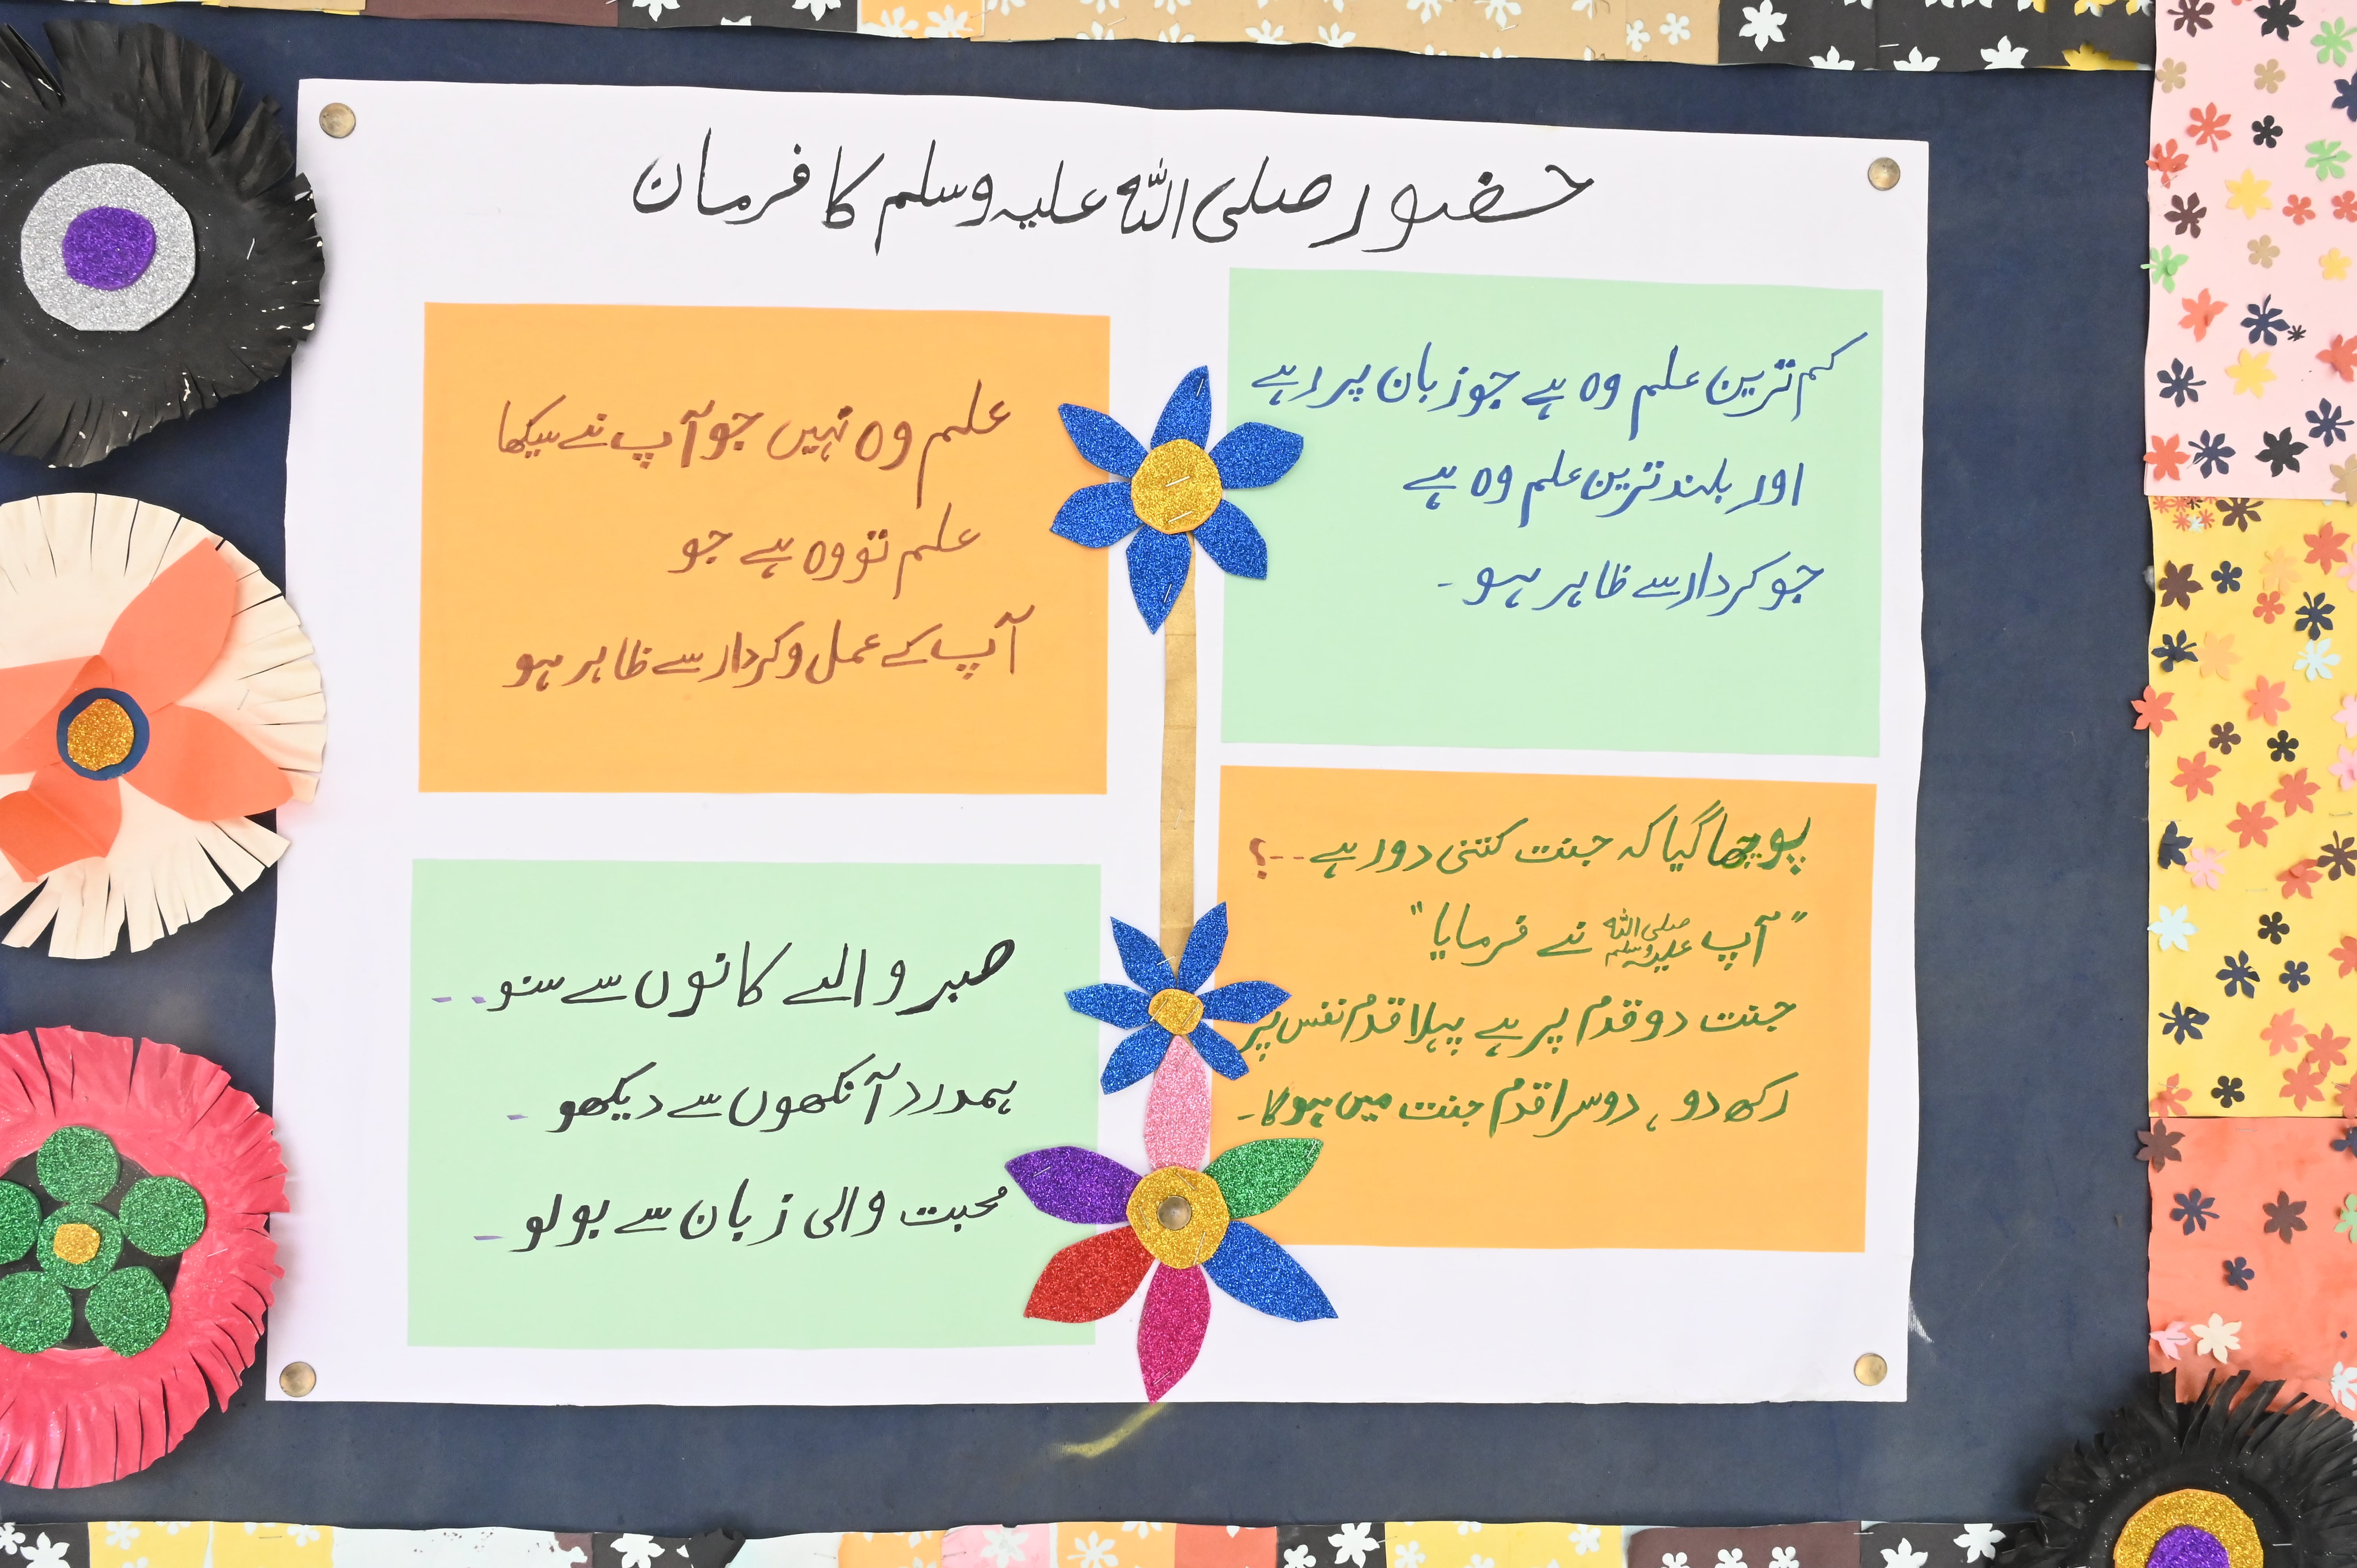 حضور صلی اللہ علیہ وسلم کا فرمان
کم ترین علم وہ ہے جو زبان پر رہے
اور بلند ترین علم وہ ہے
جو کردار سے ظاہر ہو -
علم وہ نہیں جو آپ نے سیکھا
علم تو وہ ہے جو
آپ کے عمل و کردار سے ظاہر ہو
پوچھا گیا کہ جنت کتنی دور ہے --؟
"آپ صلی اللہ علیہ وسلم نے فرمایا"
جنت دو قدم پر ہے پہلا قدم نفس پر
رکھ دو ، دوسرا قدم جنت میں ہوگا-
صبر والے کانوں سے سنو--
ہمدرد آنکھوں سے دیکھو -
محبت والی زبان سے بولو -